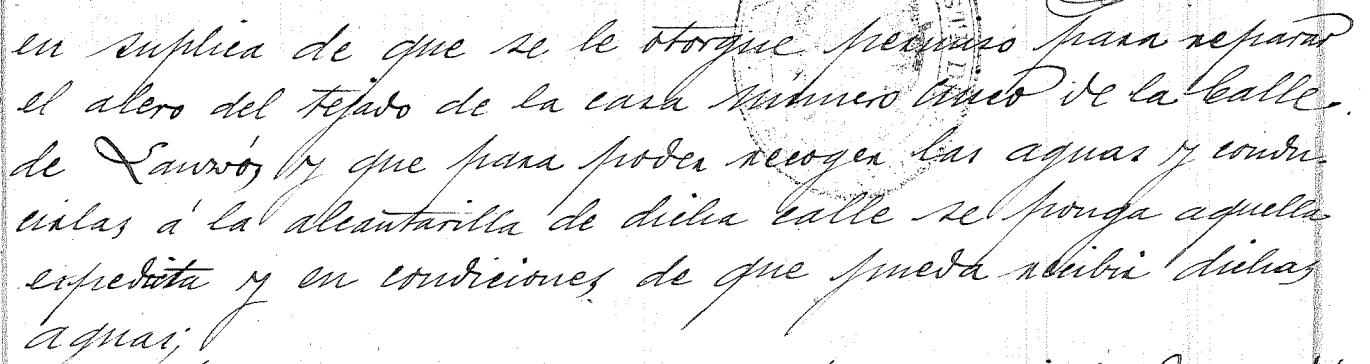 en suplica de que se le otorgue permiso para reparar
el alero del tejado de la casa número cinco de la Calle
de y que para poder recoger las aguas y condu-
cirlas á la alcantarilla de dicha calle se ponga aquella
expedita y en condiciones de que pueda recibir dichas
aguas;